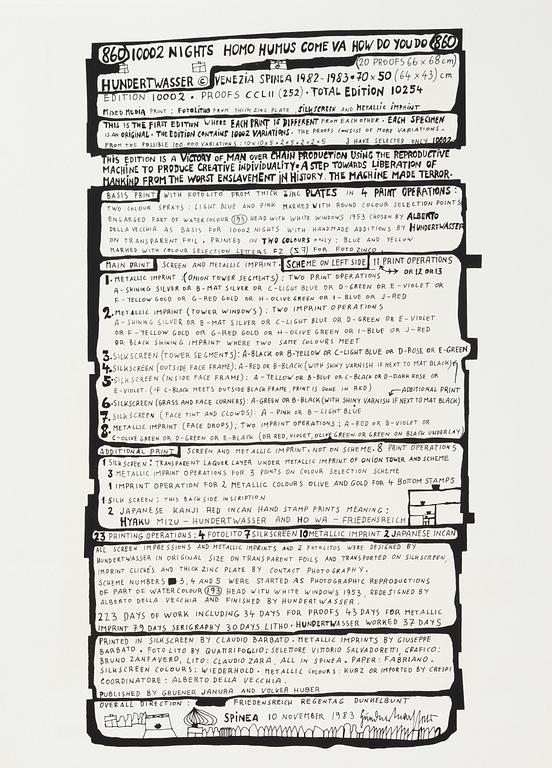 860 10002 NIGHTS HOMO HUMUS COME VA HOW DO YOU DO 860
(20 PROOFS 66 x 68 cm)
HUNDERTWASSER © VENEZIA SPINEA 1982-1983 • 70 x 50 (64 x 43) cm
EDITION 10002 • PROOFS CCLII (252) • TOTAL EDITION 10254
MIXED MEDIA PRINT: FOTOLITHO FROM THICK ZINC PLATE, SILKSCREEN AND METALLIC IMPRINT
THIS IS THE FIRST EDITION WHERE EACH PRINT IS DIFFERENT FROM EACH OTHER. EACH SPECIMEN
IS AN ORIGINAL. THE EDITION CONTAINS 10002 VARIATIONS. THE PROOFS CONSIST OF MORE VARIATIONS.
FROM THE POSSIBLE 100 000 VARIATIONS: 10x10x5x2x5x2x2x5 I HAVE SELECTED ONLY 10002.
THIS EDITION IS A VICTORY OF MAN OVER CHAIN PRODUCTION USING THE REPRODUCTIVE
MACHINE TO PRODUCE CREATIVE INDIVIDUALITY • A STEP TOWARDS LIBERATION OF
MANKIND FROM THE WORST ENSLAVEMENT IN HISTORY. THE MACHINE MADE TERROR.
BASIS PRINT WITH FOTOLITO FROM THICK ZINC PLATES IN 4 PRINT OPERATIONS:
TWO COLOUR SPRAYS: LIGHT BLUE AND PINK MARKED WITH ROUND COLOUR SELECTION POINTS
ENLARGED PART OF WATERCOLOUR 193 HEAD WITH WHITE WINDOWS 1953 CHOSEN BY ALBERTO
DELLA VECCHIA AS BASIS FOR 10002 NIGHTS WITH HANDMADE ADDITIONS BY HUNDERTWASSER
ON TRANSPARENT FOIL. PRINTED IN TWO COLOURS ONLY: BLUE AND YELLOW
MARKED WITH COLOUR SELECTION LETTERS FZ (57) FOR FOTO ZINCO
MAIN PRINT SCREEN AND METALLIC IMPRINT. SCHEME ON LEFT SIDE 11 PRINT OPERATIONS
OR 12 OR 13
1. METALLIC IMPRINT: (ONION TOWER SEGMENTS): TWO PRINT OPERATIONS
A-SHINING SILVER OR B-MAT SILVER OR C-LIGHT BLUE OR D-GREEN OR E-VIOLET OR
F-YELLOW GOLD OR G-RED GOLD OR H-OLIVE GREEN OR I-BLUE OR J-RED
2. METALLIC IMPRINT (TOWER WINDOWS): TWO IMPRINT OPERATIONS
A-SHINING SILVER OR B-MAT SILVER OR C-LIGHT BLUE OR D-GREEN OR E-VIOLET
OR F-YELLOW GOLD OR G-RED GOLD OR H-OLIVE GREEN OR I-BLUE OR J-RED
OR BLACK SHINING IMPRINT WHERE TWO SAME COLOURS MEET
3. SILKSCREEN (TOWER SEGMENTS): A-BLACK OR B-YELLOW OR C-LIGHT BLUE OR D-ROSE OR E-GREEN
4. SILKSCREEN (OUTSIDE FACE FRAME): A-RED OR B-BLACK (WITH SHINY VARNISH IF NEXT TO MAT BLACK)
5. SILKSCREEN (INSIDE FACE FRAME): A-YELLOW OR B-BLUE OR C-BLACK OR D-DARK ROSE OR
E-VIOLET. (IF C-BLACK MEETS OUTSIDE BLACK FRAME, PRINT IS DONE IN RED) ADDITIONAL PRINT
6. SILKSCREEN (GRASS AND FACE CORNERS): A-GREEN OR B-BLACK (WITH SHINY VARNISH IF NEXT TO MAT BLACK)
7. SILKSCREEN (FACE TINT AND CLOWDS): A-PINK OR B-LIGHT BLUE
8. METALLIC IMPRINT (FACE DROPS); TWO IMPRINT OPERATIONS; A-RED OR B-VIOLET OR
C-OLIVE GREEN OR D-GREEN OR E-BLACK (OR RED, VIOLET, OLIVE GREEN OR GREEN ON BLACK UNDERLAY)
ADDITIONAL PRINT SCREEN AND METALLIC IMPRINT. NOT ON SCHEME. 8 PRINT OPERATIONS
1 SILKSCREEN: TRANSPARENT LAQUER LAYER UNDER METALLIC IMPRINT OF ONION TOWER AND SCHEME
3 METALLIC IMPRINT OPERATIONS FOR 3 POINTS ON COLOUR SELECTION SCHEME
1 IMPRINT OPERATION FOR 2 METALLIC COLOURS OLIVE AND GOLD FOR 4 BOTTOM STAMPS
1 SILK SCREEN: THIS BACK SIDE INSCRIPTION
2 JAPANESE KANJI RED INCAN HAND STAMP PRINTS MEANING:
HYAKU MIZU - HUNDERTWASSER AND HO WA - FRIEDENSREICH
23 PRINTING OPERATIONS: 4 FOTOLITO 7 SILKSCREEN 10 METALLIC IMPRINT 2 JAPANESE INCAN
ALL SCREEN IMPRESSIONS AND METALLIC IMPRINTS AND 2 FOTOLITOS WERE DESIGNED BY
HUNDERTWASSER IN ORIGINAL SIZE ON TRANSPARENT FOILS AND TRANSPORTED ON SILKSCREEN,
IMPRINT CLICHÉS AND THICK ZINC PLATE BY CONTACT PHOTOGRAPHY.
SCHEME NUMBERS 3, 4 AND 5 WERE STARTED AS PHOTOGRAPHIC REPRODUCTIONS
OF PART OF WATERCOLOUR 193 HEAD WITH WHITE WINDOWS 1953. REDESIGNED BY
ALBERTO DELLA VECCHIA AND FINISHED BY HUNDERTWASSER.
223 DAYS OF WORK INCLUDING 34 DAYS FOR PROOFS 43 DAYS FOR METALLIC
IMPRINT 79 DAYS SERIGRAPHY 30 DAYS LITHO. HUNDERTWASSER WORKED 37 DAYS
PRINTED IN SILKSCREEN BY CLAUDIO BARBATO. METALLIC IMPRINTS BY GIUSEPPE
BARBATO. FOTO LITO BY QUATRIFOGLIO; SELETTORE VITTORIO SALVADORETTI, GRAFICO:
BRUNO ZANFAVERO, LITO: CLAUDIO ZARA, ALL IN SPINEA. PAPER: FABRIANO.
SILKSCREEN COLOURS: WIEDERHOLD. METALLIC COLOURS: KURZ OR IMPORTED BY CRESPI
COORDINATORE: ALBERTO DELLA VECCHIA.
PUBLISHED BY GRUENER JANURA AND VOLKER HUBER
OVERALL DIRECTION: REGENTAG FRIEDENSREICH DUNKELBUNT
SPINEA 10 NOVEMBER 1983 Hundertwasser